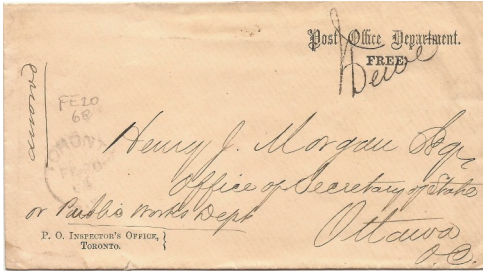 Post Office Department.
FREE.
Dewe
FE 20
68
TORONTO
FE 20
68
Henry J. Morgan Esqr
Office of Secretary of State
or Public Works Dept
Ottawa
P. O. INSPECTOR'S OFFICE,
TORONTO.